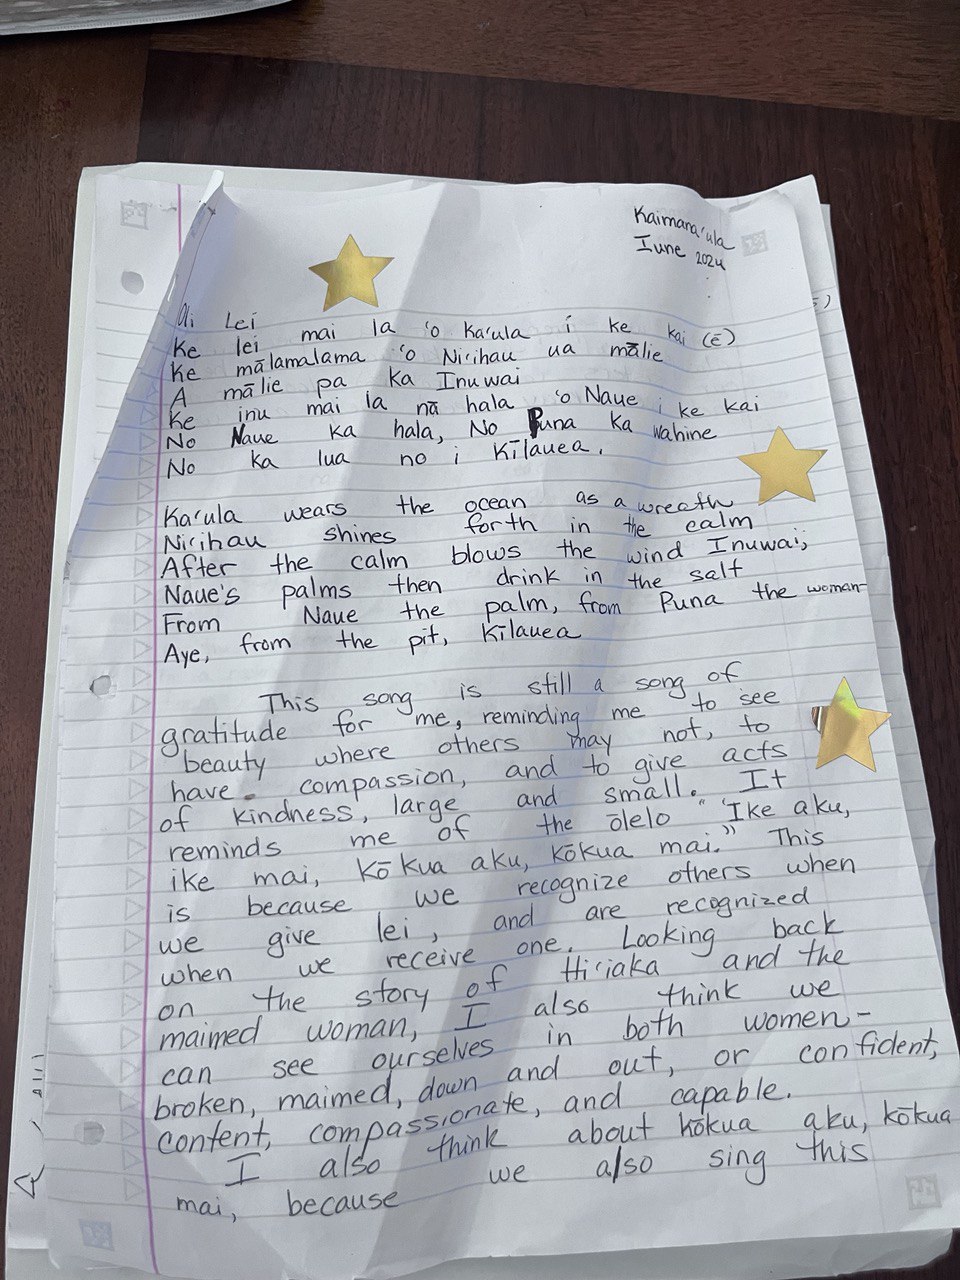 Kaimana'ula
Iune 2024
Oli Lei
Ke lei mai la 'o Ka'ula i ke kai (ē)
Ke mālamalama 'o Ni'ihau ua mālie
A mālie pa ka Inuwai
Ke inu mai la nā hala 'o Naue i ke kai
No Naue ka hala, No Puna ka wahine
No ka lua no i Kīlauea.
Ka'ula wears the ocean as a wreath
Ni'ihau shines forth in the calm
After the calm blows the wind Inuwai;
Naue's palms then drink in the salt
From Naue the palm, from Puna the woman-
Aye, from the pit, Kīlauea
This song is still a song of
gratitude for me, reminding me to see
beauty where others may not, to
have compassion, and to give acts
of kindness, large and small. It
reminds me of the ōlelo "'Ike aku,
ike mai, kōkua aku, kōkua mai." This
is because we recognize others when
we give lei, and are recognized
when we receive one. Looking back
on the story of Hi'iaka and the
maimed woman, I also think we
can see ourselves in both women-
broken, maimed, down and out, or confident,
content, compassionate, and capable.
I also think about kōkua aku, kōkua
mai, because we also sing this